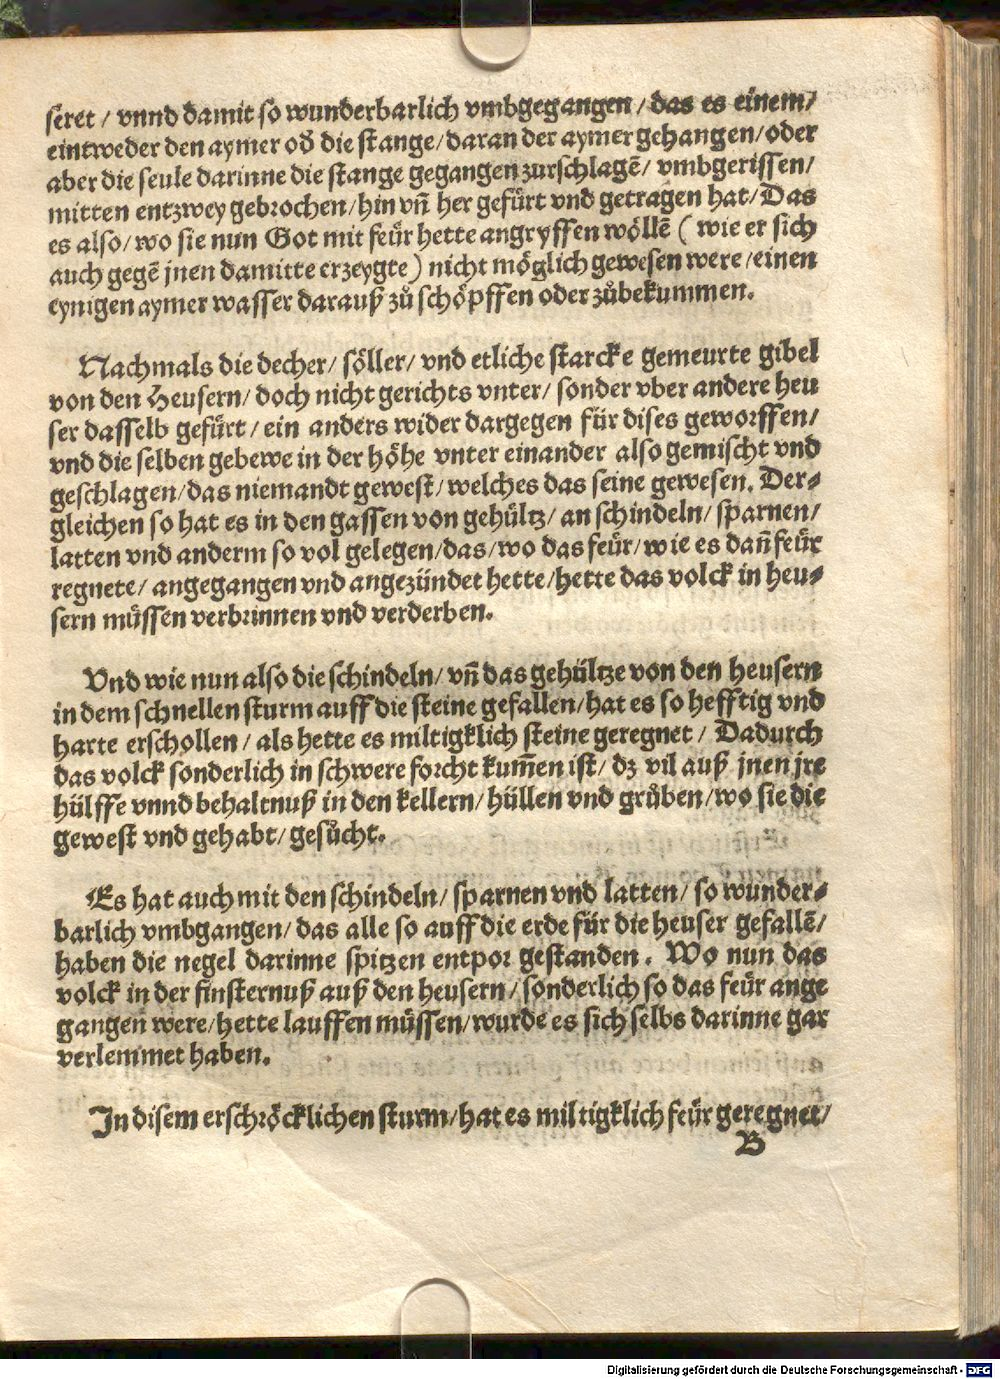 seret / vnnd damit so wunderbarlich vmbgegangen / das es einem /
eintweder den aymer od̕ die stange / daran der aymer gehangen / oder
aber die seule darinne die stange gegangen zurschlagẽ / vmbgerissen /
mitten entzwey gebrochen / hin vñ her gefürt vnd getragen hat / Das
es also / wo sie nun Got mit feür hette angryffen wöllẽ ( wie er sich
auch gegẽ jnen damitte erzeygte ) nicht möglich gewesen were / einen
eynigen aymer wasser darauß zů schöpffen oder zůbekummen.
Nachmals die decher / söller / vnd etliche starcke gemeurte gibel
von den Heusern / doch nicht gerichts vnter / sonder vber andere heu
ser dasselb gefürt / ein anders wider dargegen für dises geworffen /
vnd die selben gebewe in der höhe vnter einander also gemischt vnd
geschlagen / das niemandt gewest / welches das seine gewesen. Der-
gleichen so hat es in den gassen von gehültz / an schindeln / sparnen /
latten vnd anderm so vol gelegen / das / wo das feür / wie es dañ feür
regnete / angegangen vnd angezündet hette / hette das volck in heu-
sern müssen verbrinnen vnd verderben.
Vnd wie nun also die schindeln / vñ das gehültze von den heusern
in dem schnellen sturm auff die steine gefallen / hat es so hefftig vnd
harte erschollen / als hette es miltigklich steine geregnet / Dadurch
das volck sonderlich in schwere forcht kum̃en ist / dz vil auß jnen jre
hülffe vnnd behaltnuß in den kellern / hüllen vnd grůben / wo sie die
gewest vnd gehabt / gesůcht.
Es hat auch mit den schindeln / sparnen vnd latten / so wunder-
barlich vmbgangen / das alle so auff die erde für die heuser gefallẽ /
haben die negel darinne spitzen entpor gestanden. Wo nun das
volck in der finsternuß auß den heusern / sonderlich so das feür ange
gangen were / hette lauffen müssen / wurde es sich selbs darinne gar
verlemmet haben.
In disem erschröcklichen sturm / hat es miltigklich feür geregnet /
B
Digitalisierung gefördert durch die Deutsche Forschungsgemeinschaft - DFG